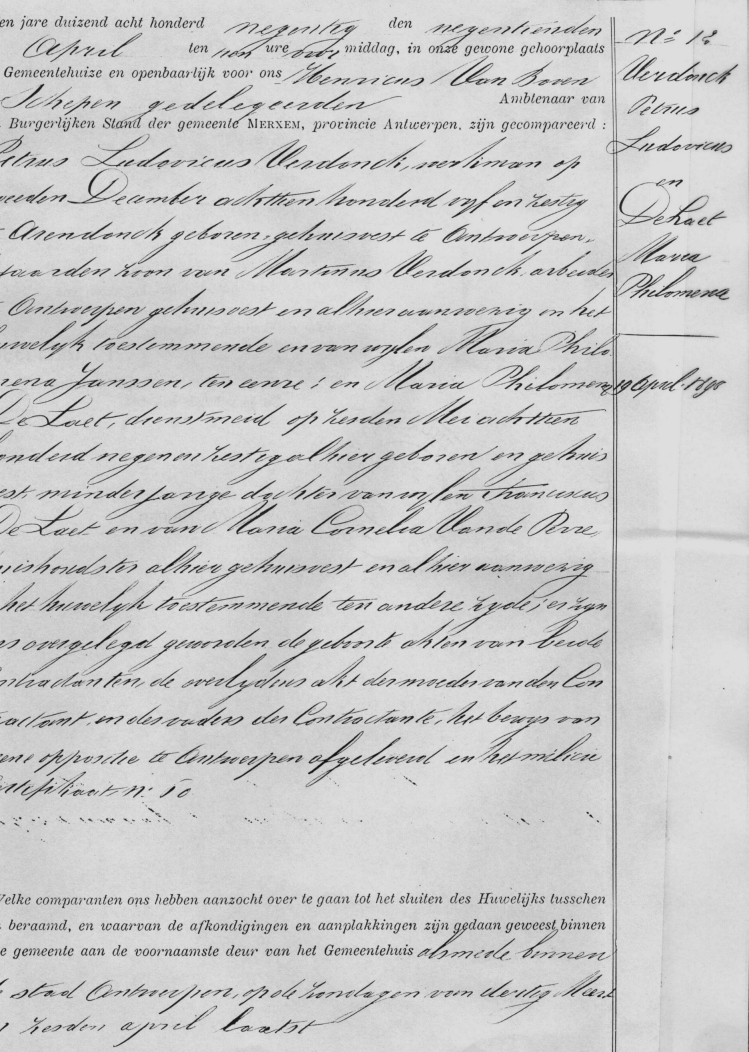 en jare duizend acht honderd negentig den negentienden
April ten tien ure voor middag, in onze gewone gehoorplaats
Gemeentehuize en openbaarlijk voor ons Henricus Van Boven
Schepen gedelegeerden Ambtenaar van
Burgerlijken Stand der gemeente MERXEM, provincie Antwerpen, zijn gecompareerd :
Petrus Ludovicus Verdonck, werkman op
weeden December achttien honderd vyf en zestig
Arendonck geboren, gehuisvest te Antwerpen,
jaarden zoon van Martinus Verdonck arbeider
Antwerpen gehuisvest en alhier aanwezig en het
uwelyk toestemmende en van wylen Maria Philo
mena Janssen, ten eenre ; en Maria Philomena
De Laet, dienstmeid op zesden Mei achttien
onderd negenen zestig alhier geboren en gehuis
est, minderjarige dochter van wylen Franciscus
De Laet en van Maria Cornelia Vande Perre,
uishoudster alhier gehuisvest en alhier aanwezig
het huwelyk toestemmende ten andere zyde ; er zyn
ns overgelegd geworden de geboorte akten van beide
ontractanten, de overlydens akt der moeder van den Con
tractant, en des vaders der Contractante, het bewys van
eene oppositie te Antwerpen afgeleverd en het milicie
certifikaat n: 50
Welke comparanten ons hebben aanzocht over te gaan tot het sluiten des Huwelijks tusschen
beraamd, en waarvan de afkondigingen en aanplakkingen zijn gedaan geweest binnen
e gemeente aan de voornaamste deur van het Gemeentehuis alsmede binnen
stad Antwerpen, op de zondagen van dertig Maart
zesden april laatst
N: 12
Verdonck
Petrus
Ludovicus
en
De Laet
Maria
Philomena
19 April 1890